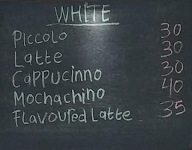 WHITE
Piccolo 30
Latte 30
Cappucinno 30
Mochachino 40
Flavoured Latte 35